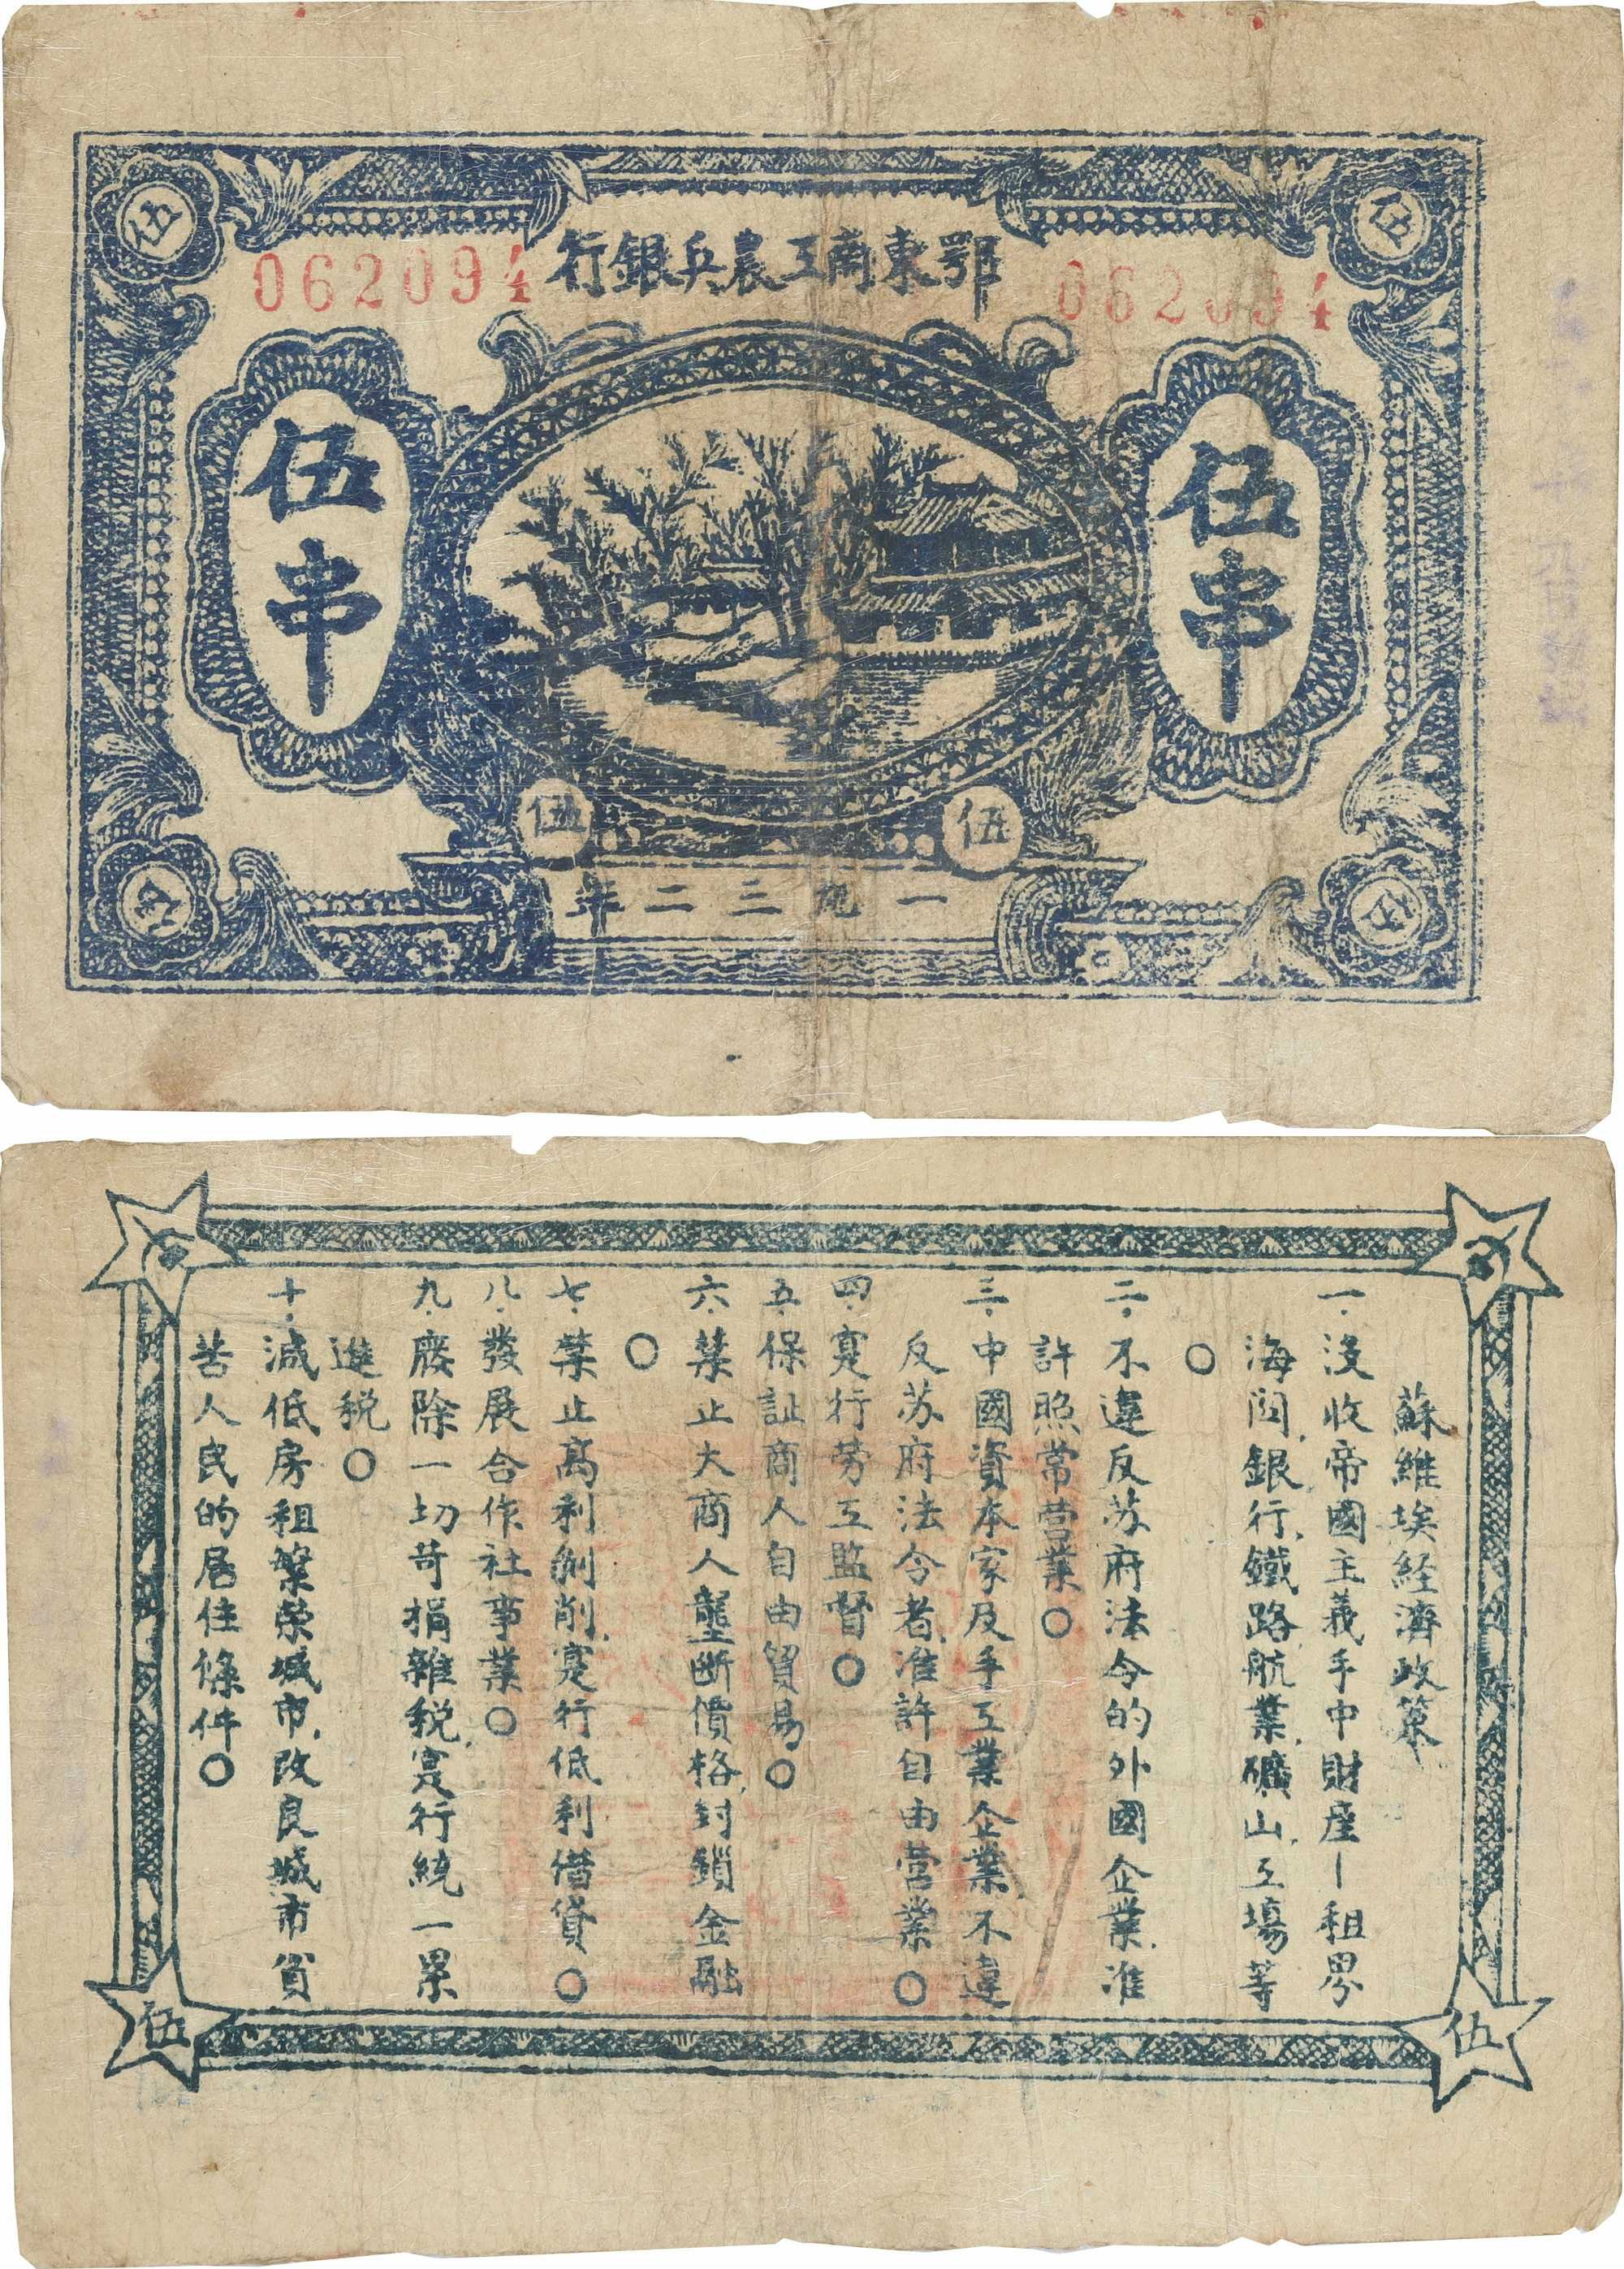 鄂東南工農兵銀行
062094
062094
伍
伍
伍串
伍串
伍
伍
一九三二年
伍
伍
蘇維埃経濟政策
一.沒收帝國主義手中財產—租界
海関,銀行,鐵路,航業,礦山,工場等
○
二.不違反苏府法令的外國企業,准
許照常营業○
三.中國資本家及手工業企業,不違
反苏府法令者,准許自由营業○
四.寔行劳工監督○
五.保証商人自由貿易○
六.禁止大商人壟斷價格,封鎖金融
○
七.禁止高利剝削,寔行低利借貸○
八.發展合作社事業○
九.廢除一切苛捐雜税,寔行統一累
進税○
十.減低房租繁荣城市,改良城市貧
苦人民的居住條件○
伍
伍